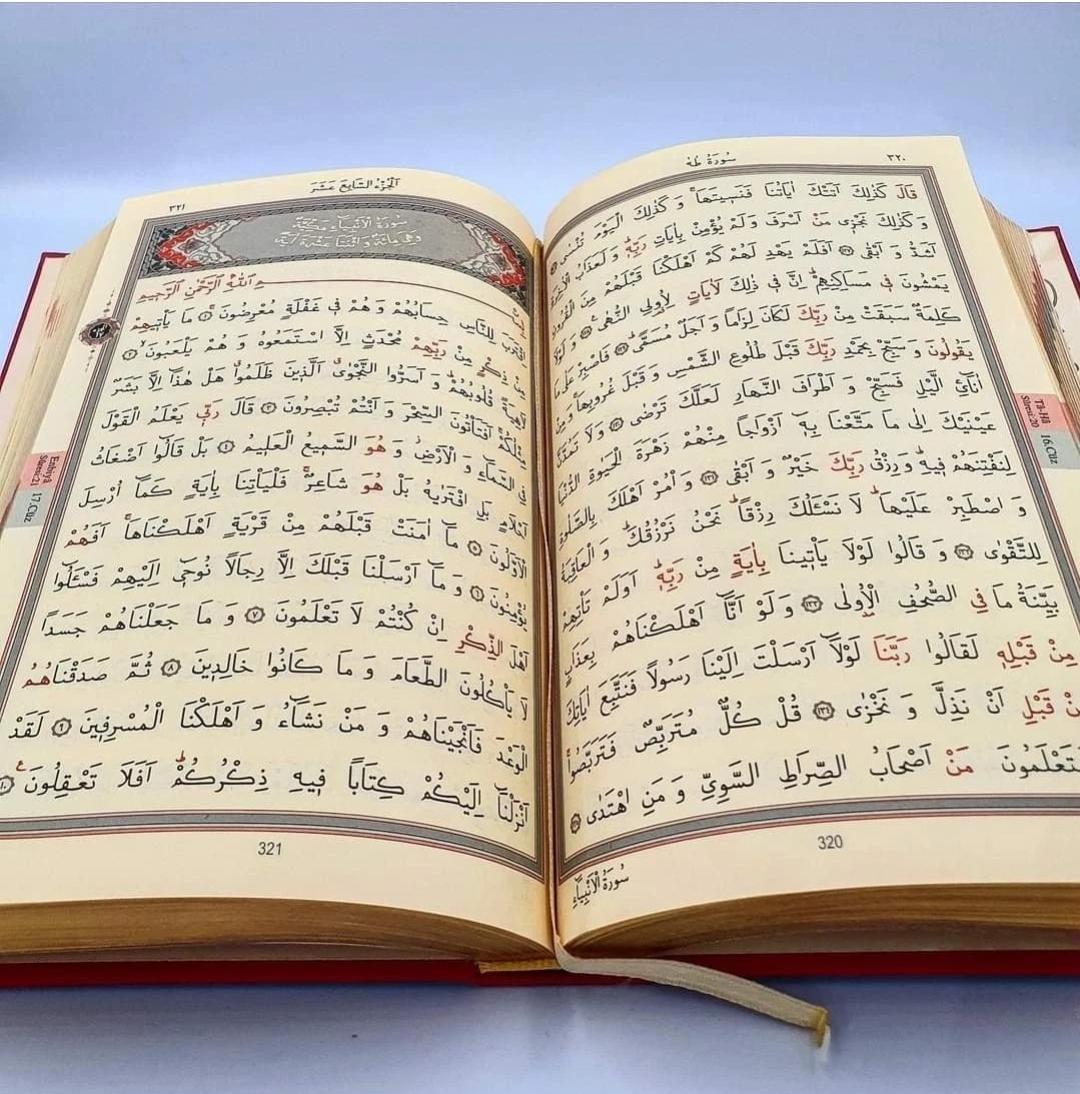 ٣٢٠
سُورَةُ طٰهٰ
قَالَ كَذٰلِكَ اَتَتْكَ اٰيَاتُنَا فَنَسِيتَهَاۚ وَ كَذٰلِكَ الْيَوْمَ تُنْسٰى
وَ كَذٰلِكَ نَجْزٖى مَنْ اَسْرَفَ وَ لَمْ يُؤْمِنْ بِاٰيَاتِ رَبِّهٖؕ وَ لَعَذَابُ الْاٰخِرَةِ
اَشَدُّ وَ اَبْقٰى ﴿١٢٧﴾ اَفَلَمْ يَهْدِ لَهُمْ كَمْ اَهْلَكْنَا قَبْلَهُمْ مِنَ الْقُرُونِ
يَمْشُونَ فٖى مَسَاكِنِهِمْؕ اِنَّ فٖى ذٰلِكَ لَاٰيَاتٍ لِاُولِى النُّهٰىࣖ ﴿١٢٨﴾ وَ لَوْلَا
كَلِمَةٌ سَبَقَتْ مِنْ رَبِّكَ لَكَانَ لِزَاماً وَ اَجَلٌ مُسَمًّىؕ ﴿١٢٩﴾ فَاصْبِرْ عَلٰى مَا
يَقُولُونَ وَ سَبِّحْ بِحَمْدِ رَبِّكَ قَبْلَ طُلُوعِ الشَّمْسِ وَ قَبْلَ غُرُوبِهَاۚ وَ مِنْ
اٰنَآئِ الَّيْلِ فَسَبِّحْ وَ اَطْرَافَ النَّهَارِ لَعَلَّكَ تَرْضٰى ﴿١٣٠﴾ وَ لَا تَمُدَّنَّ
عَيْنَيْكَ اِلٰى مَا مَتَّعْنَا بِهٖٓ اَزْوَاجاً مِنْهُمْ زَهْرَةَ الْحَيٰوةِ الدُّنْيَا
لِنَفْتِنَهُمْ فٖيهِؕ وَ رِزْقُ رَبِّكَ خَيْرٌ وَ اَبْقٰى ﴿١٣١﴾ وَ اْمُرْ اَهْلَكَ بِالصَّلٰوةِ
وَ اصْطَبِرْ عَلَيْهَاؕ لَا نَسْـَٔلُكَ رِزْقاًؕ نَحْنُ نَرْزُقُكَؕ وَ الْعَاقِبَةُ
لِلتَّقْوٰى ﴿١٣٢﴾ وَ قَالُوا لَوْلَا يَأْتٖينَا بِاٰيَةٍ مِنْ رَبِّهٖؕ اَوَلَمْ تَأْتِهِمْ
بَيِّنَةُ مَا فِى الصُّحُفِ الْاُولٰى ﴿١٣٣﴾ وَ لَوْ اَنَّٓا اَهْلَكْنَاهُمْ بِعَذَابٍ
مِنْ قَبْلِهٖ لَقَالُوا رَبَّنَا لَوْلَٓا اَرْسَلْتَ اِلَيْنَا رَسُولاً فَنَتَّبِعَ اٰيَاتِكَ
مِنْ قَبْلِ اَنْ نَذِلَّ وَ نَخْزٰى ﴿١٣٤﴾ قُلْ كُلٌّ مُتَرَبِّصٌ فَتَرَبَّصُواۚ
فَسَتَعْلَمُونَ مَنْ اَصْحَابُ الصِّرَاطِ السَّوِىِّ وَ مَنِ اهْتَدٰى ﴿١٣٥﴾
320
سُورَةُ الْاَنْبِيَاءِ
Tâ-Hâ
Sûresi:20
16.Cüz
اَلْجُزْءُ السَّابِعَ عَشَرَ
٣٢١
سُورَةُ الْاَنْبِيَاءِ مَكِّيَّةٌ
وَهِىَ مِائَةٌ وَ اثْنَتَا عَشْرَةَ اٰيَةً
ـمِ اللّٰهِ الرَّحْمٰنِ الرَّحٖيمِ
اِقْتَرَبَ لِلنَّاسِ حِسَابُهُمْ وَ هُمْ فٖى غَفْلَةٍ مُعْرِضُونَۚ ﴿١﴾ مَا يَأْتٖيهِمْ
مِنْ ذِكْرٍ مِنْ رَبِّهِمْ مُحْدَثٍ اِلَّا اسْتَمَعُوهُ وَ هُمْ يَلْعَبُونَۙ ﴿٢﴾
لَاهِيَةً قُلُوبُهُمْؕ وَ اَسَرُّوا النَّجْوٰىۗ اَلَّذٖينَ ظَلَمُواۗ هَلْ هٰذَٓا اِلَّا بَشَرٌ
مِثْلُكُمْۚ اَفَتَأْتُونَ السِّحْرَ وَ اَنْتُمْ تُبْصِرُونَ ﴿٣﴾ قَالَ رَبّٖى يَعْلَمُ الْقَوْلَ
فِى السَّمَٓاءِ وَ الْاَرْضِؗ وَ هُوَ السَّمٖيعُ الْعَلٖيمُ ﴿٤﴾ بَلْ قَالُٓوا اَضْغَاثُ
اَحْلَامٍ بَلِ افْتَرٰيهُ بَلْ هُوَ شَاعِرٌۚ فَلْيَأْتِنَا بِاٰيَةٍ كَمَٓا اُرْسِلَ
الْاَوَّلُونَ ﴿٥﴾ مَٓا اٰمَنَتْ قَبْلَهُمْ مِنْ قَرْيَةٍ اَهْلَكْنَاهَاۚ اَفَهُمْ
يُؤْمِنُونَ ﴿٦﴾ وَ مَٓا اَرْسَلْنَا قَبْلَكَ اِلَّا رِجَالاً نُوحٖٓى اِلَيْهِمْ فَسْـَٔلُٓوا
اَهْلَ الذِّكْرِ اِنْ كُنْتُمْ لَا تَعْلَمُونَ ﴿٧﴾ وَ مَا جَعَلْنَاهُمْ جَسَداً
لَا يَأْكُلُونَ الطَّعَامَ وَ مَا كَانُوا خَالِدٖينَ ﴿٨﴾ ثُمَّ صَدَقْنَاهُمُ
الْوَعْدَ فَاَنْجَيْنَاهُمْ وَ مَنْ نَشَٓاءُ وَ اَهْلَكْنَا الْمُسْرِفٖينَ ﴿٩﴾ لَقَدْ
اَنْزَلْنَٓا اِلَيْكُمْ كِتَاباً فٖيهِ ذِكْرُكُمْؕ اَفَلَا تَعْقِلُونَࣖ ﴿١٠﴾
321
Enbiyâ
Sûresi:21
17.Cüz